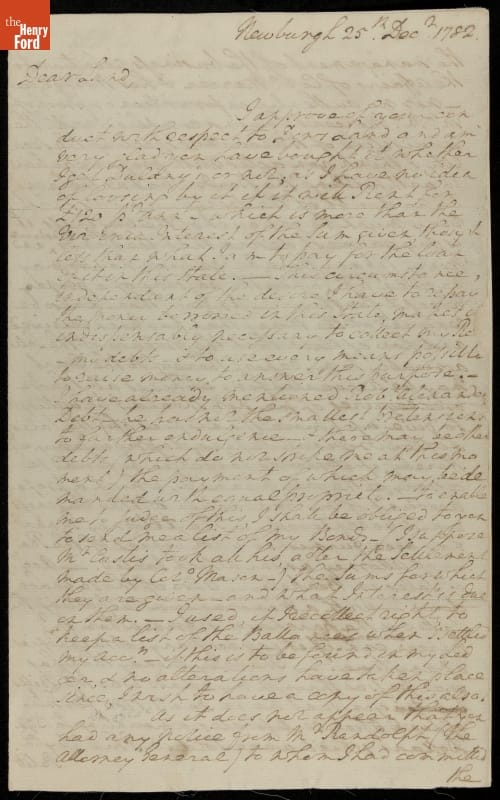 the
Henry
Ford
Newburgh 25th Decr 1782.
Dear Lund,
I approve of your con
duct with respect to land and am
very glad you have bought it whether
I get Dulany's or not, as I have no idea
of loosing by it if it will Rent for
£120 pr Ann - which is more than the
Interest of the Sum given though
less than what I am to pay for the loan
in this State. — This circumstance,
independent of the desire I have to repay
the money borrowed in this State, makes it
indispensably necessary to collect my Re
-maing debts & to use every means possible
to raise money to answer this purpose. —
I have already mentioned Robt Alexanders
Debt - he has not the smallest pretensions
to further indulgence — there may be other
debts which do not strike me at this mo
ment) the payment of which may be de
manded with equal propriety. — To enable
me to judge of this, I shall be obliged to you
to send me a list of my Bonds - (I suppose
Mr Custis took all his after the settlement
made by Colo Mason -) the Sums for which
they are given - and what Interest is due
on them. — I used, if I recollect right, to
keep a list of the Ballances when I settled
my Accts - if this is to be found in my led
ger, & no alterations have taken place
since, I wish to have a copy of this also.
As it does not appear that you
had any notice from Mr Randolph (the
Attorney General) to whom I had committed
the